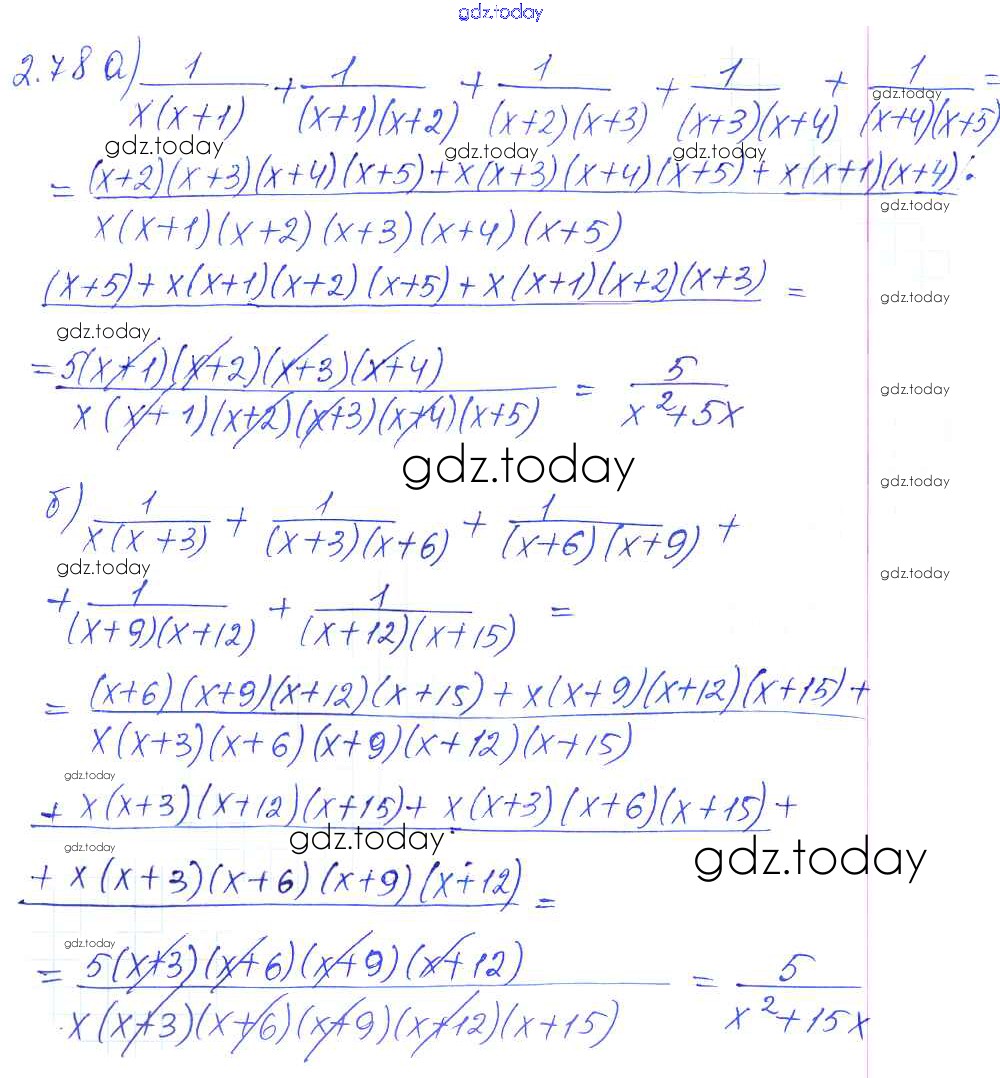 gdz.today
2.78 а) 1/(x(x+1)) + 1/((x+1)(x+2)) + 1/((x+2)(x+3)) + 1/((x+3)(x+4)) + 1/((x+4)(x+5)) =
gdz.today
gdz.today gdz.today gdz.today
= (x+2)(x+3)(x+4)(x+5)+x(x+3)(x+4)(x+5)+x(x+1)(x+4):
gdz.today
x(x+1)(x+2)(x+3)(x+4)(x+5)
(x+5)+x(x+1)(x+2)(x+5)+x(x+1)(x+2)(x+3) =
gdz.today
gdz.today
= 5(x+1)(x+2)(x+3)(x+4)/(x(x+1)(x+2)(x+3)(x+4)(x+5)) = 5/(x²+5x)
gdz.today
gdz.today
gdz.today
б) 1/(x(x+3)) + 1/((x+3)(x+6)) + 1/((x+6)(x+9)) +
gdz.today
gdz.today
+ 1/((x+9)(x+12)) + 1/((x+12)(x+15)) =
= (x+6)(x+9)(x+12)(x+15)+x(x+9)(x+12)(x+15)+
x(x+3)(x+6)(x+9)(x+12)(x+15)
gdz.today
+ x(x+3)(x+12)(x+15)+x(x+3)(x+6)(x+15)+
gdz.today gdz.today gdz.today
+ x(x+3)(x+6)(x+9)(x+12) =
gdz.today
= 5(x+3)(x+6)(x+9)(x+12)/(x(x+3)(x+6)(x+9)(x+12)(x+15)) = 5/(x²+15x)